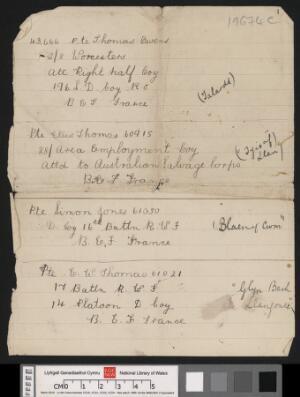 19674C
43,666 Pte Thomas Owens
2/8 Worcesters
Att Right half Coy
196 L D Coy R E
B E F France
Pte Thomas 60915
Area Employment Coy
Attd to Australian Salvage Corps
B. E. F France
Pte Simon Jones 61050
D Coy 16th Battn R. W. F
"Blaeny Cwm"
B. E. F France
Pte E. W Thomas 61021
"Glyn Bach
17 Battn R. W F
14 Platoon D Coy
B. E. F France
Llyfrgell Genedlaethol Cymru
National Library of Wales
CM 0 1 2 3 4 5